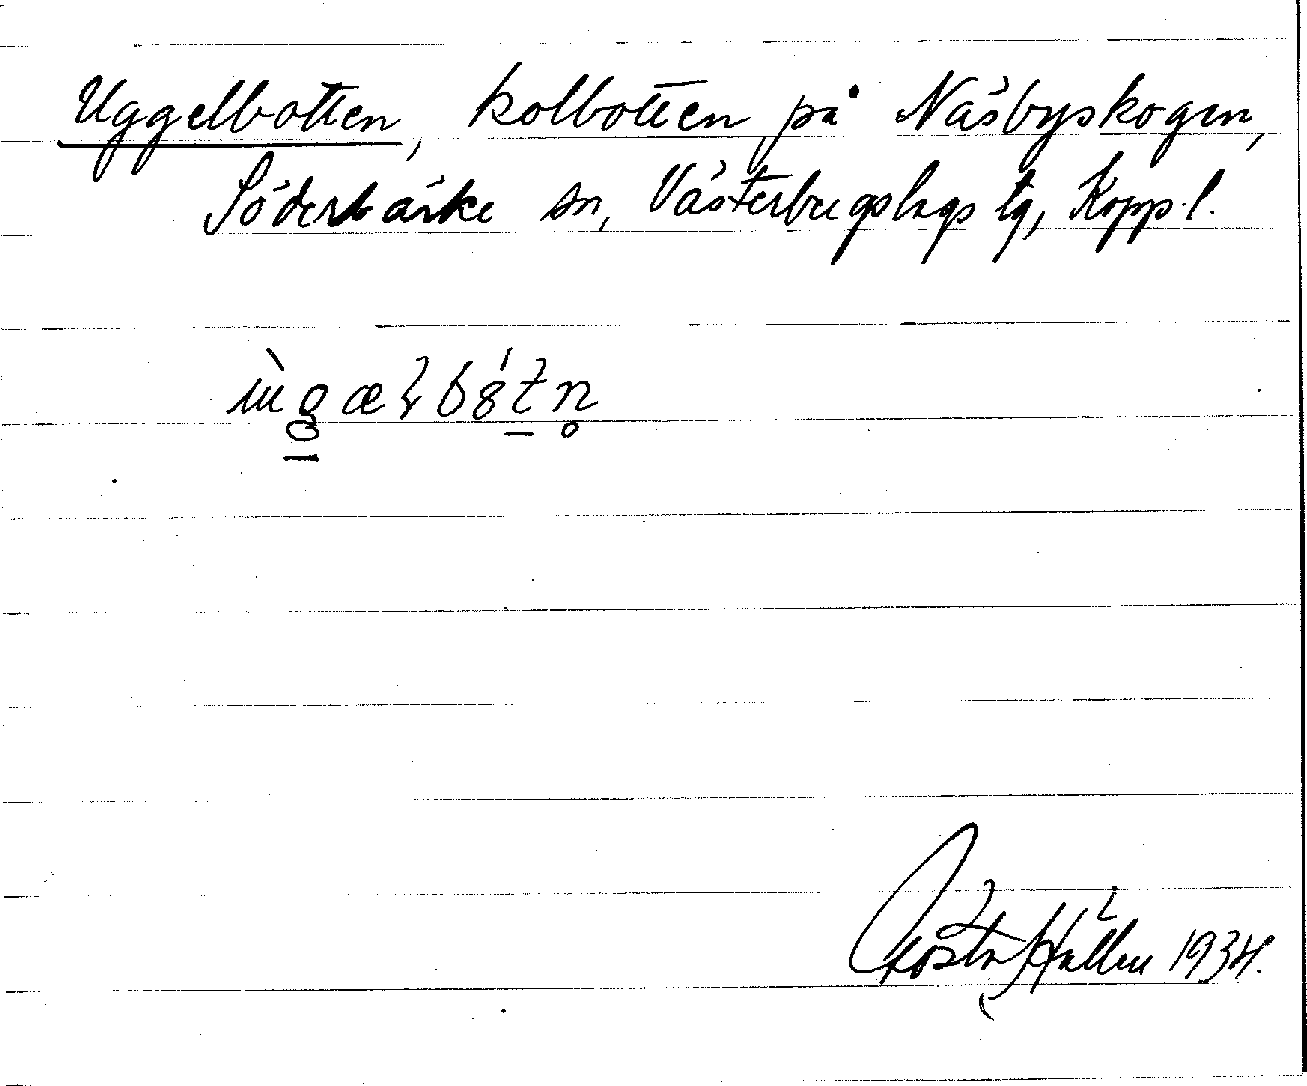 Uggelbotten, kolbotten på Näsbyskogen,
Söderbärke sn, Västerbergslags tg, Kopp. l.
Gösta Hällen 1934.